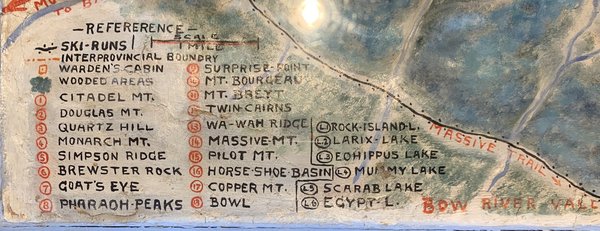 TO B
-REFERERENCE-
SKI-RUNS
SCALE
1 MILE
INTERPROVINCIAL BOUNDRY
WARDEN'S CABIN
WOODED AREAS
1 CITADEL MT.
2 DOUGLAS MT.
3 QUARTZ HILL
4 MONARCH MT.
5 SIMPSON RIDGE
6 BREWSTER ROCK
7 GOAT'S EYE
8 PHARAOH-PEAKS
SURPRISE-POINT
MT. BOURGEAU
MT. BREYT
TWIN-CAIRNS
13 WA-WAH RIDGE
14 MASSIVE-MT.
15 PILOT MT.
16 HORSE-SHOE-BASIN
17 COPPER MT.
BOWL
L1 ROCK-ISLAND-L.
L2 LARIX-LAKE
L3 EOHIPPUS LAKE
L4 MUMMY LAKE
L5 SCARAB LAKE
L6 EGYPT-L.
MASSIVE TRAIL
BOW RIVER VALL